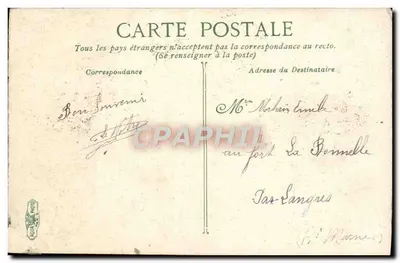 CARTE POSTALE
Tous les pays étrangers n'acceptent pas la correspondance au recto.
(Se renseigner à la poste)
Correspondance
Adresse du Destinataire
Bon Souvenir
CPAPHIL
au fort La Bonnelle
Par Langres